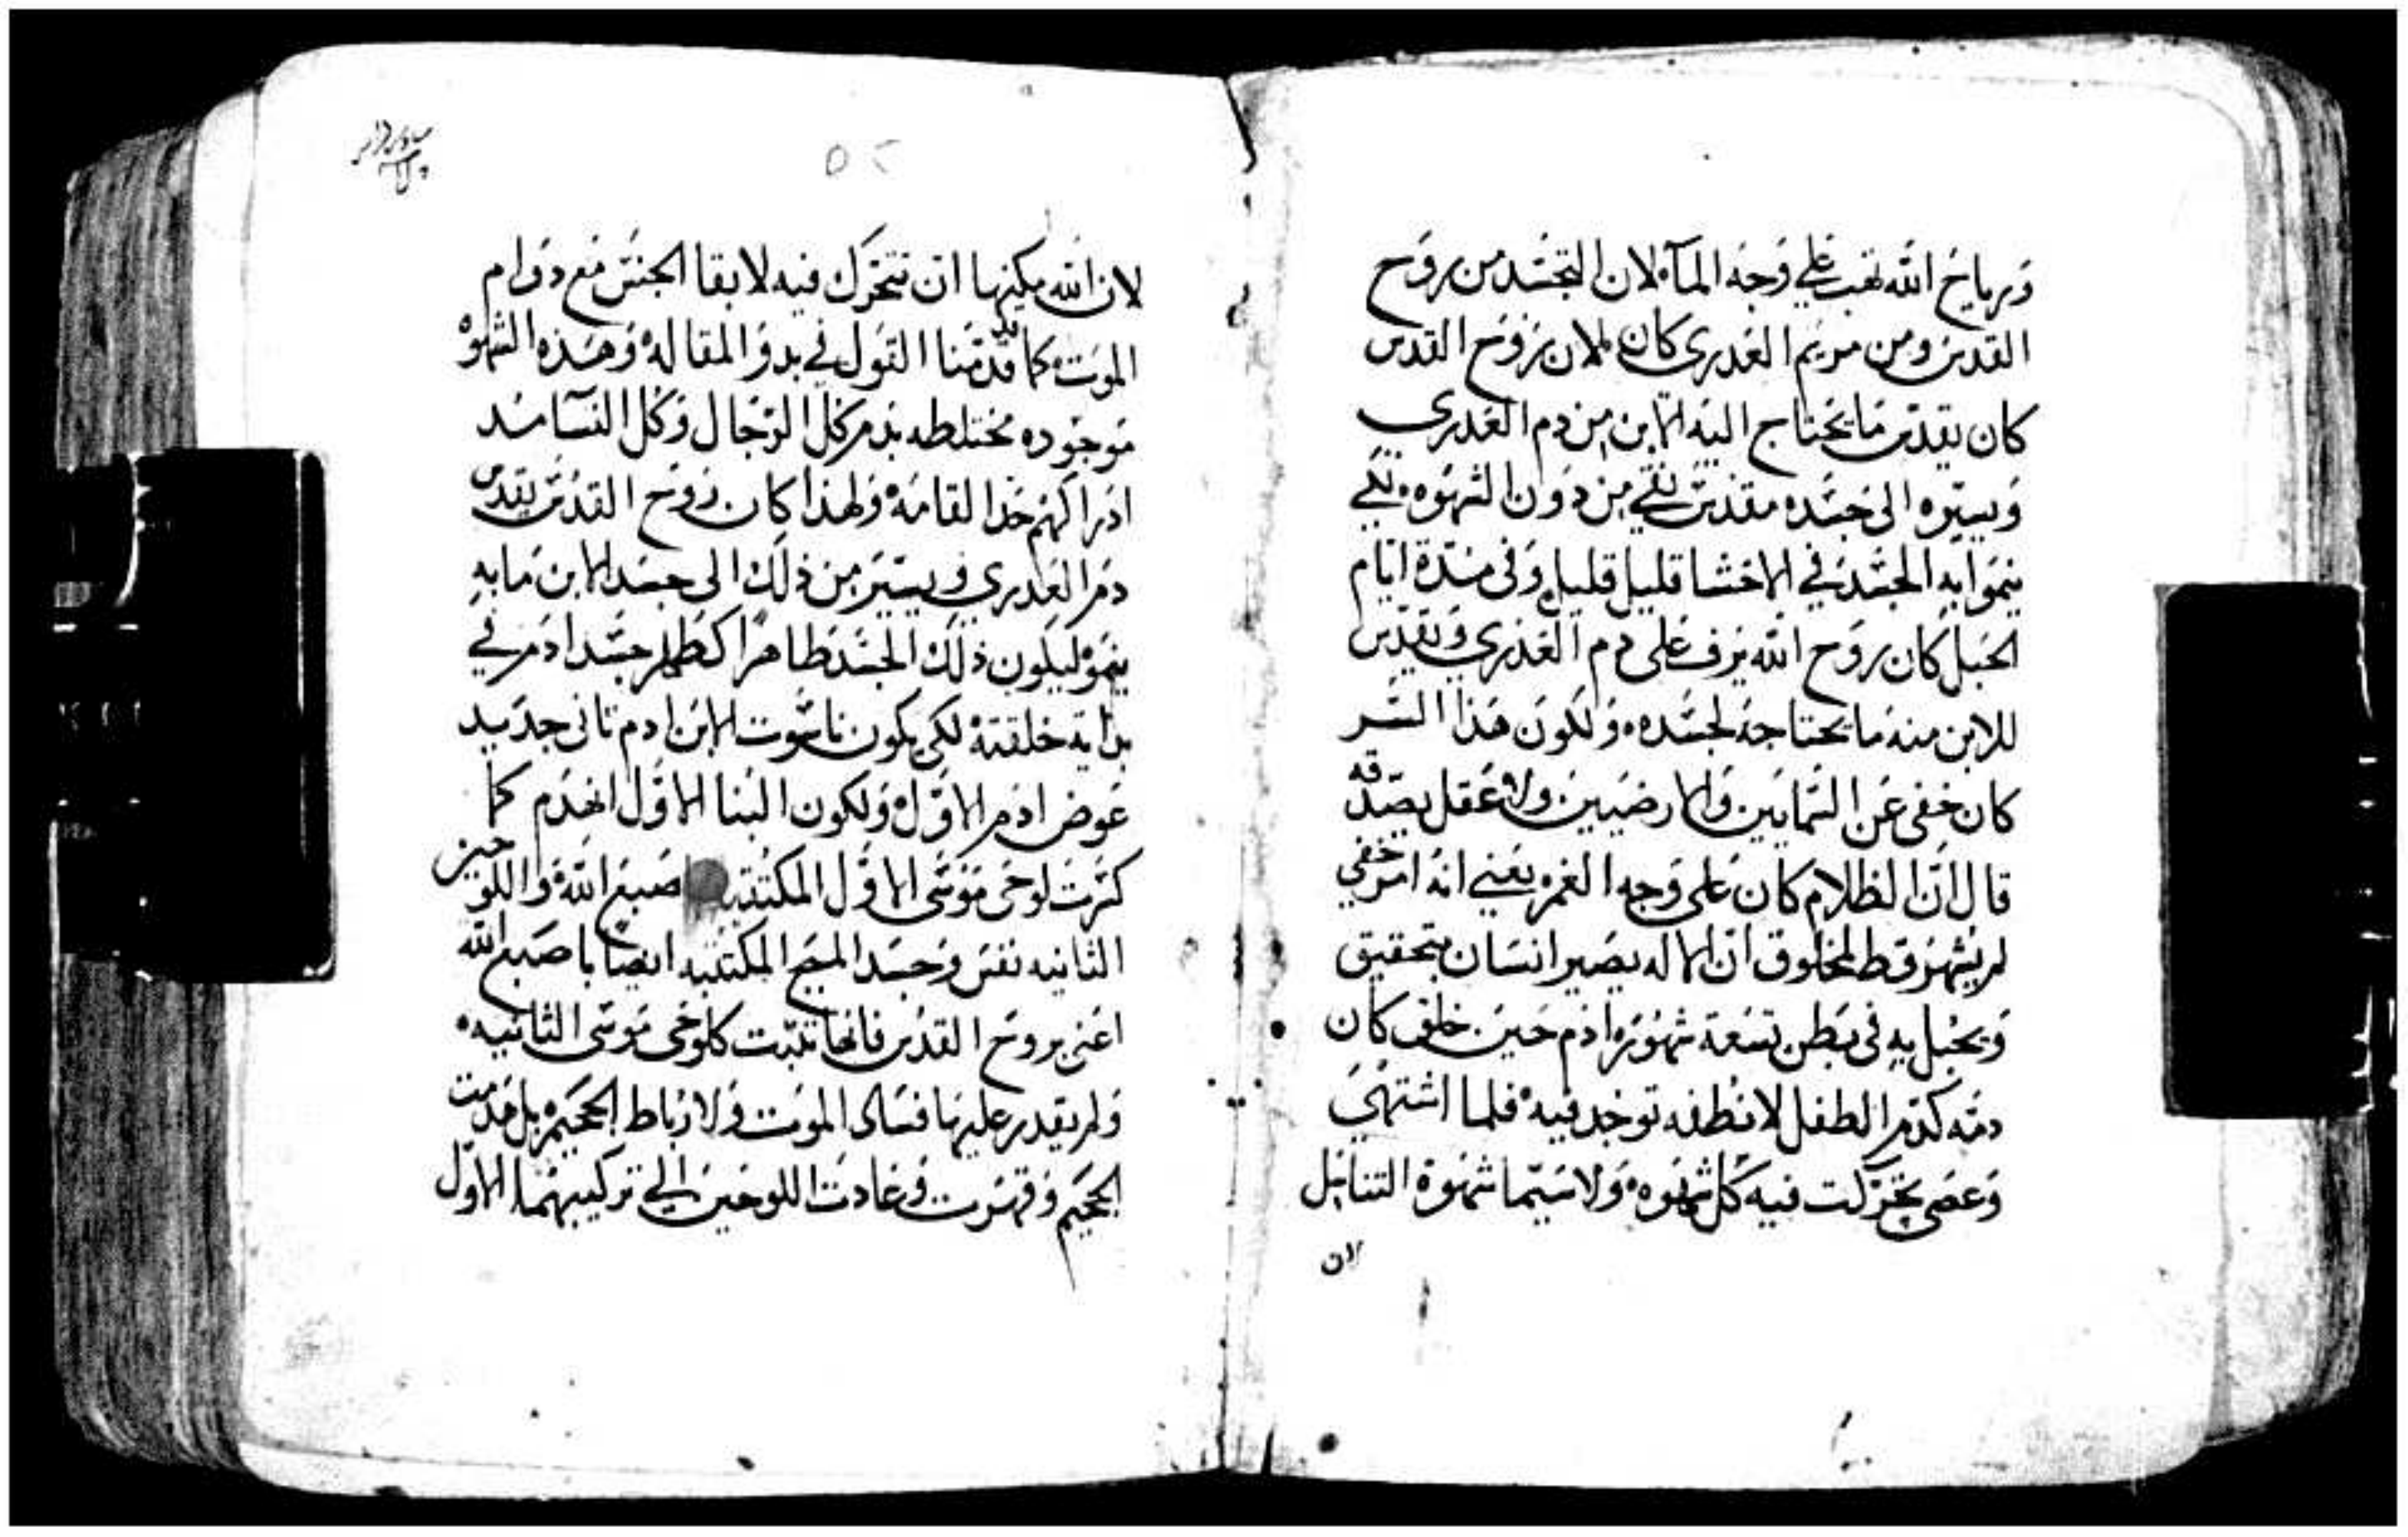 ورياح الله تهب على وجه المآء لان التجسد من روح
القدس ومن مريم العدرى كان لان روح القدس
كان يقدس ما يحتاج اليه الابن من دم العدرى
ويسيره الى جسده مقدس نقي من دون الشهوه لكي
ينموا به الجسد في الاحشا قليل قليل وفى مدة ايام
الحبل كان روح الله يرف على دم العذري ويقدس
للابن منه ما يحتاجه لجسده ولكون هذا السر
كان خفى عن السمايين والارضيين ولا عقل يصدقه
قال ان الظلام كان على وجه الغمر يعني انه امر خفي
لم يشهر قط لمخلوق ان الاله يصير انسان بتحقيق
ويحبل به فى بطن تسعة شهور ادم حين خلق كان
دمه كدم الطفل لا نطفه توجد فيه فلما اشتهى
وعصى تحركت فيه كل شهوه ولا سيما شهوة التناسل
لان
٥٢
لان الله مكنها ان تتحرك فيه لابقا الجنس مع دوام
الموت كما قدمنا القول في بدو المقاله وهذه الشهوه
موجوده مختلطه بدم كل الرجال وكل النسا منذ
ادراكهم حد القامه ولهذا كان روح القدس يقدس
دم العدري ويسير من ذلك الى جسد الابن ما به
ينمو ليكون ذلك الجسد طاهرا كطهر جسد ادم في
بداية خلقته لكي يكون ناسوت الابن ادم تانى جديد
عوض ادم الاول ولكون البنا الاول انهدم كما
كسرت لوحى موسى الاول المكتتبه اصبع الله واللوحين
الثانيه نفس وجسد المسيح المكتتبه ايضا باصبع الله
اعنى بروح القدس فانها تثبت كلوحى موسى الثانيه
ولم يقدر عليها فساد الموت ولا رباط الجحيم بل هدمت
الجحيم وقهرت وعادت اللوحين الى تركيبهما الاول